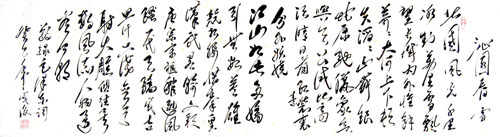 沁园春雪
北国风光千里
冰封万里雪飘
望长城内外惟馀
莽莽大河上下顿
失滔滔山舞银
蛇原驰蜡象欲
与天公试比高
须晴日看红装素裹
分外妖娆
江山如此多娇
引无数英雄
竞折腰惜秦皇
汉武略输文采
唐宗宋祖稍逊风
骚一代天骄成吉
思汗只识弯弓
射大雕俱往矣
数风流人物还
看今朝
录毛泽东词